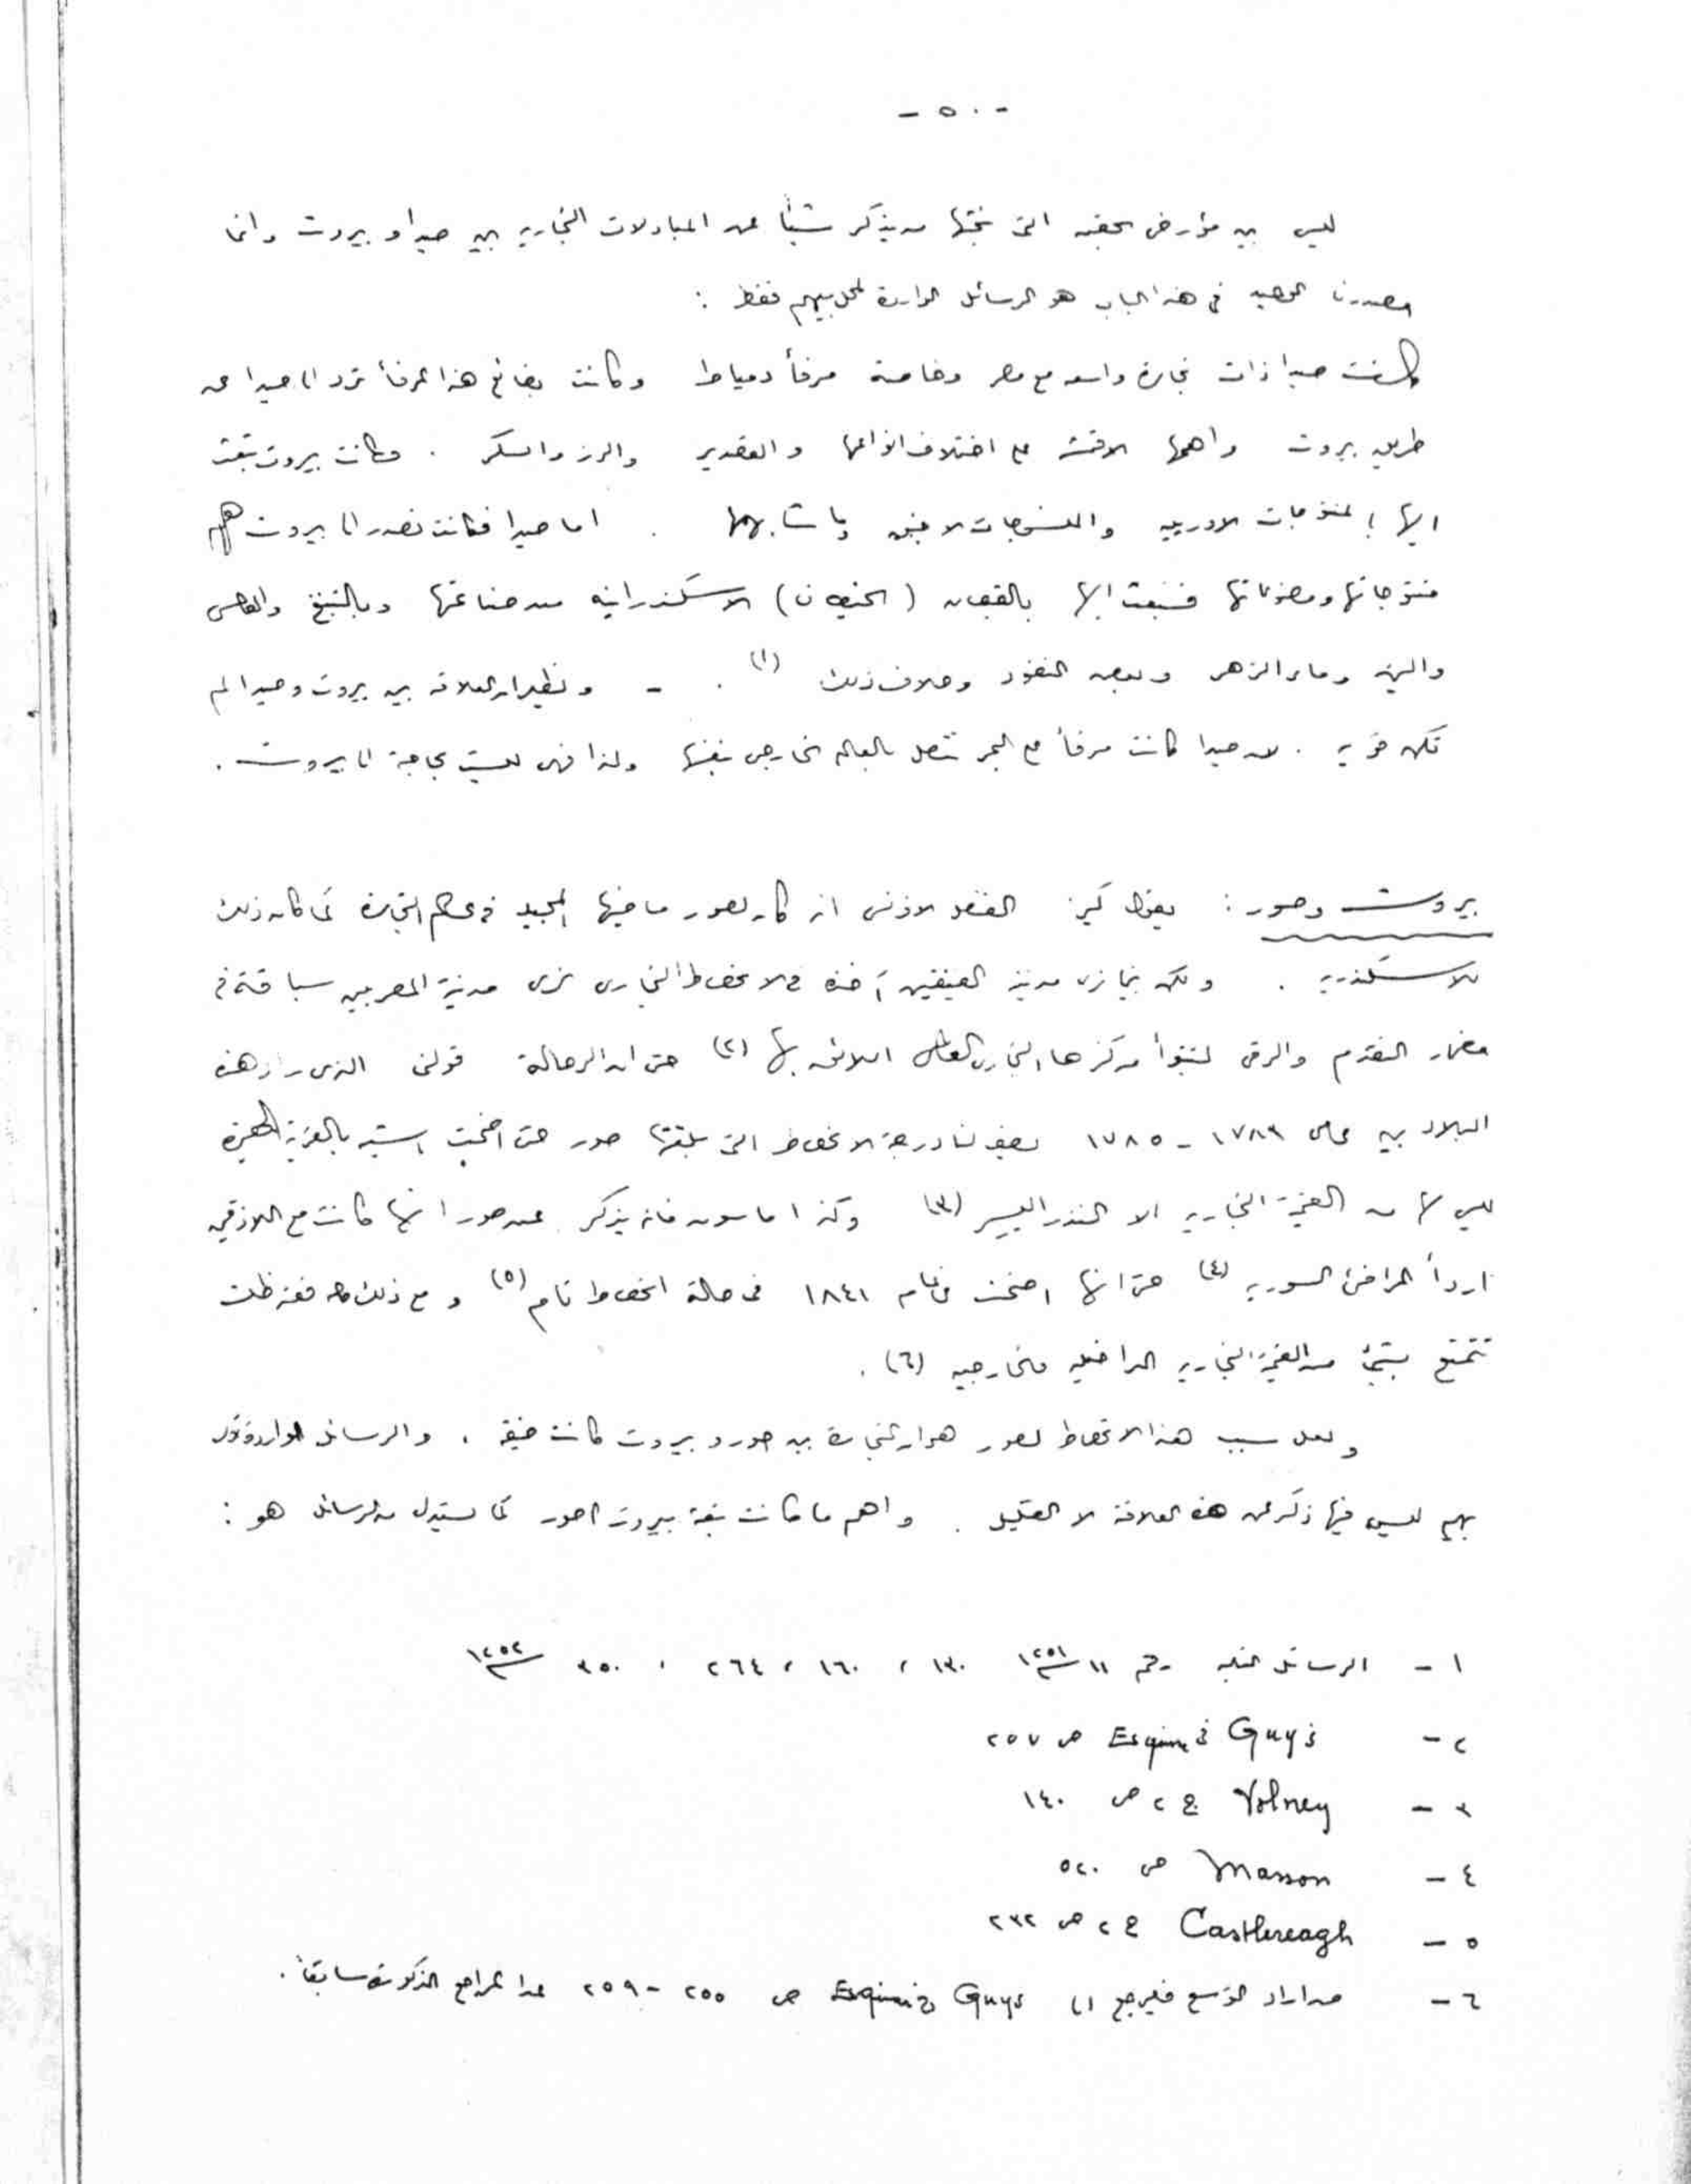 - ٥٠ -
ليس بين مؤرخي الحقبة التي نبحثها من يذكر شيئاً عن المبادلات التجارية بين صيدا و بيروت وانما
مصدرنا الوحيد في هذا الباب هو الرسائل الواردة فقط :
كانت صيدا ذات تجارة واسعة مع مصر وخاصة مرفأ دمياط وكانت بضائع هذا المرفأ ترد الى صيدا عن
طريق بيروت واهمها الاقمشة على اختلاف انواعها والقصدير والرز والسكر . وكانت بيروت تبعث
اليها المنتوجات الاوربية والمنسوجات وما شابهها . اما صيدا فكانت تصدر الى بيروت اهم
منتوجاتها ومصنوعاتها فتبعث اليها بالقفطان ( ) الاسكندرانية من صناعتها وبالتبغ
والتين وماء الزهر وبعض النقود وخلاف ذلك (١) . - ويظهر ان العلاقة بين بيروت وصيدا لم
تكن قوية . لان صيدا كانت مرفأ على البحر تتصل بالعالم الخارجي بنفسها ولذا فهي ليست بحاجة الى بيروت .
بيروت وصور : يقول كيز القنصل الافرنسي انه كان لصور ماضيها المجيد في عالم التجارة كما كان ذلك
للاسكندرية . ولكن بينما نرى مدينة الفينيقيين آخذة في الانحطاط التجاري نرى مدينة المصريين سباقة في
مضمار التقدم والرقي لتتبوأ مركزها التجاري العالمي اللائق بها (٢) حتى ان الرحالة فولني الذي زار هذه
البلاد بين عامي ١٧٨٣ - ١٧٨٥ يصف لنا درجة الانحطاط التي بلغتها صور حتى اضحت اشبه بالقرية الصغيرة
ليس لها من القيمة التجارية الا النذر اليسير (٣) وكذا ماسون فانه يذكر عن صور انها كانت مع اللاذقية
اردأ المرافئ السورية (٤) حتى انها اضحت في عام ١٨٤١ في حالة انحطاط تام (٥) و مع ذلك فقد ظلت
تتمتع بشيء من القيمة التجارية الداخلية والخارجية (٦) .
ولعل سبب هذا الانحطاط لصور هو ان التجارة بين صور و بيروت كانت ضيقة . والرسائل الواردة
ليس فيها ذكر عن هذه العلاقة الا القليل . واهم ما كانت تبعثه بيروت لصور كما يستدل من الرسائل هو :
١ - الرسائل رقم ١١ سنة ١٢٥١ ١٣٠ ، ١٦٠ ، ٢٦٤ ، ٣٥٠ سنة ١٢٥٢
٢ - Guys في Esquisse ص ٢٥٧
٣ - Volney ج ٢ ص ١٤٠
٤ - Masson ص ٥٢٠
٥ - Castlereagh ج ٢ ص ٢٣٢
٦ - من اراد التوسع فليرجع الى Guys في Esquisse ص ٢٥٥ - ٢٥٩ عدا المراجع المذكورة سابقاً .